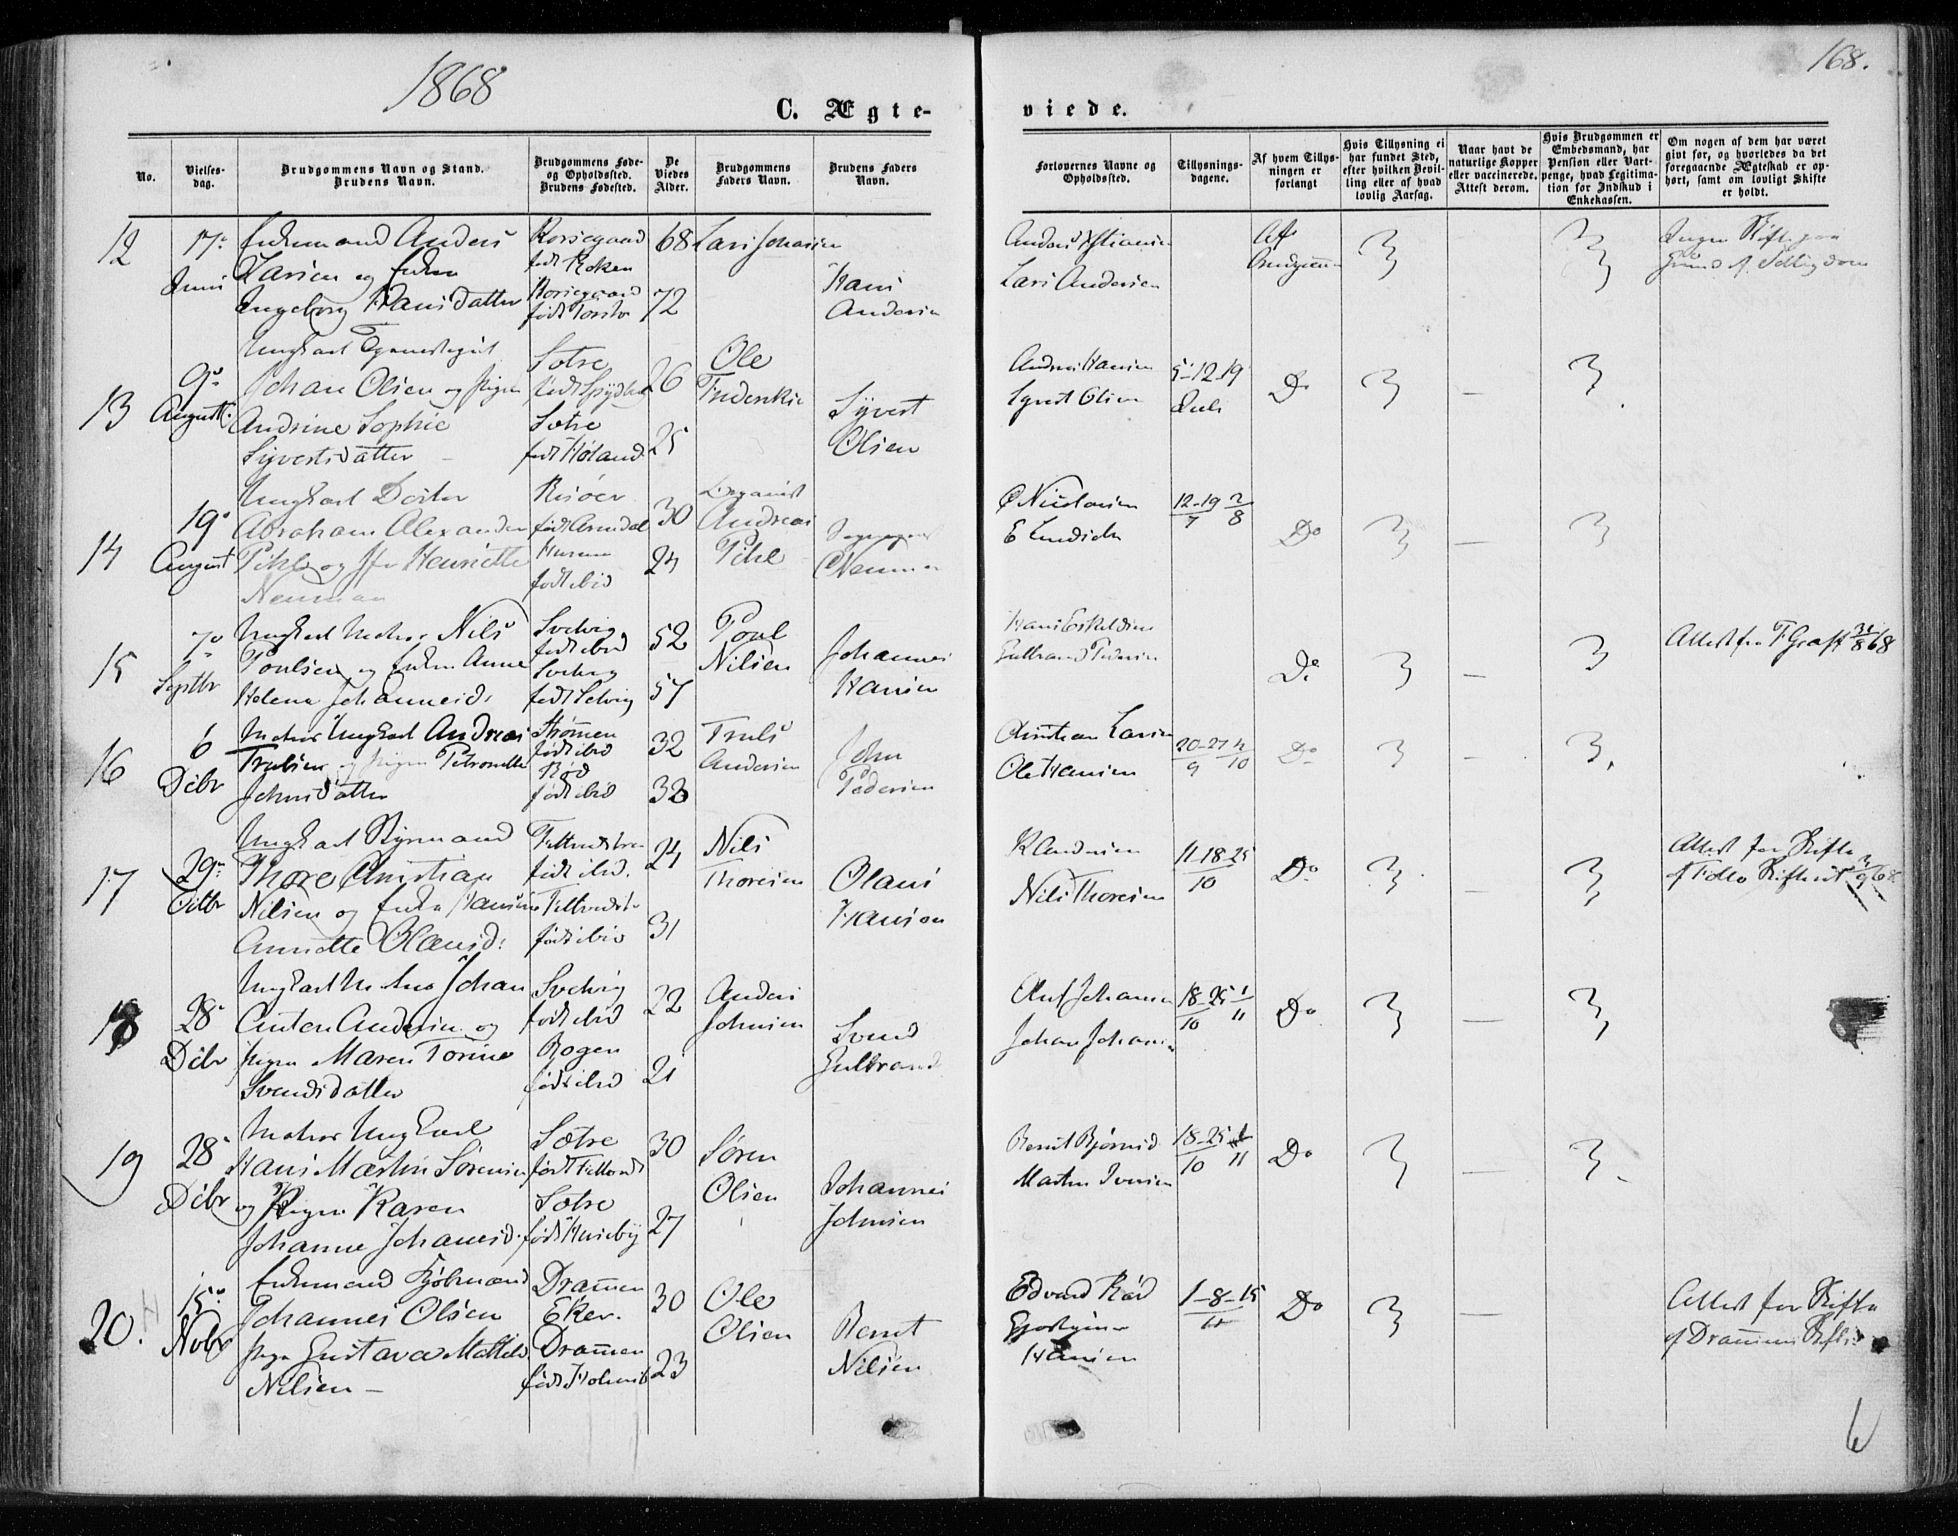 1868
168.
C. Ægte-
viede.
No.
Vielses-
dag.
Brudgommens Navn og Stand.
Brudens Navn.
Brudgommens Føde-
og Opholdssted.
Brudens Fødested.
De
Viedes
Alder.
Brudgommens
Faders Navn.
Brudens Faders
Navn.
Forlovernes Navne og
Opholdssted.
Tillysnings-
dagene.
Af hvem Tillys-
ningen er
forlangt
Hvis Tillysning ei
har fundet Sted,
efter hvilken Bevil-
ling eller af hvad
lovlig Aarsag.
Naar havt de
naturlige Kopper
eller vaccinerede.
Attest derom.
Hvis Brudgommen er
Embedsmand, har
Pension eller Vart-
penge, hvad Legitima-
tion for Indskud i
Enkekassen.
Om nogen af dem har været
givt før, og hvorledes da det
foregaaende Ægteskab er op-
hørt, samt om lovligt Skifte
er holdt.
12
17.
Juni
Enkemand Anders
Larsen og Enke
Ingeborg Hansdatter
Korsegaard
født Røken
Korsegaard
født
68
72
Lars Johansen
Hans
Andersen
Anders
Lars Andersen
Af
Brudgommen
Ingen Skifte paa
Grund af
13
9.
August
Ungkarl
Johan Olsen og Pigen
Andrine Sophie
Syvertsdatter
Sætre
født Spydbe
Sætre
født Høland
26
25
Ole
Frederiksen
Syvert
Olsen
Andreas Hansen
Syvert Olsen
5-12-19
Juli
Do
14
19
August
Ungkarl Doctor
Abraham Alexander
Pihl og Jfr Henriette
Neuman
Risøer
født Arendal
Hurum
født ibid
30
24
Andreas
Pihl
Neuman
C Nicolaisen
12-19 2
7 8
Do
15
7
Septbr
Ungkarl Matros Nils
Poulsen og Enken Anne
Helena Johannesd.
Svelvig
født ibid
Svelvig
født Selvig
52
57
Poul
Nilsen
Johannes
Hansen
Hans Eskildsen
Gulbrand Pedersen
Do
Attest fra T Graff 31/8 68
16
6
Ocbr
Matros Ungkarl Andreas
Trulsen og Pigen Petronelle
Johnsdatter
Strømmen
født ibid
Rød
født ibid
32
33
Truls
Andersen
John
Pedersen
Christian Larsen
Ole Hansen
20-27 4
9 10
Do
17
29.
Octbr
Ungkarl Styrmand
Thore Christian
Nilsen og Enke Hansine
Annette Olausd:
Filtvedstran
født ibid.
Filtvedst
født ibid
24
31
Nils
Thoresen
Olaus
Hansen
K Andersen
Nils Thoresen
11-18-25
10
Do
Attest for Skifte
af Follo Skifteret 3/9 68
18
28
Ocbr
Ungkarl Matros Johan
Anton Andersen og
Pigen Maren Torine
Svendsdatter
Svelvig
født ibid
Bogen
født ibid
22
21
Anders
Johnsen
Svend
Gulbrands
Oluf Johansen
Johan Johansen
18-25 1
10 11
Do
19
28
Ocbr
Matros Ungkarl
Hans Martin Sørensen
og Pigen Karen
Johanne Johannesd.
Sætre
født Filtvedt
Sætre
født Huseby
30
27
Søren
Olsen
Johannes
Johnsen
Bernt Bjørnsd
Martin Iversen
18-25 1
10 11
Do
20.
15.
Nobr
Enkemand Kjøbmand
Johannes Olsen
Pige Gustava Mathild.
Nilsen -
Drammen
Eker.
Drammen
født Holmsb
30
23
Ole
Olsen
Bernt
Nilsen
Edvard Rød
Hansen
1-8-15
11
Do
Attest for Skifte
af Drammens Skifter